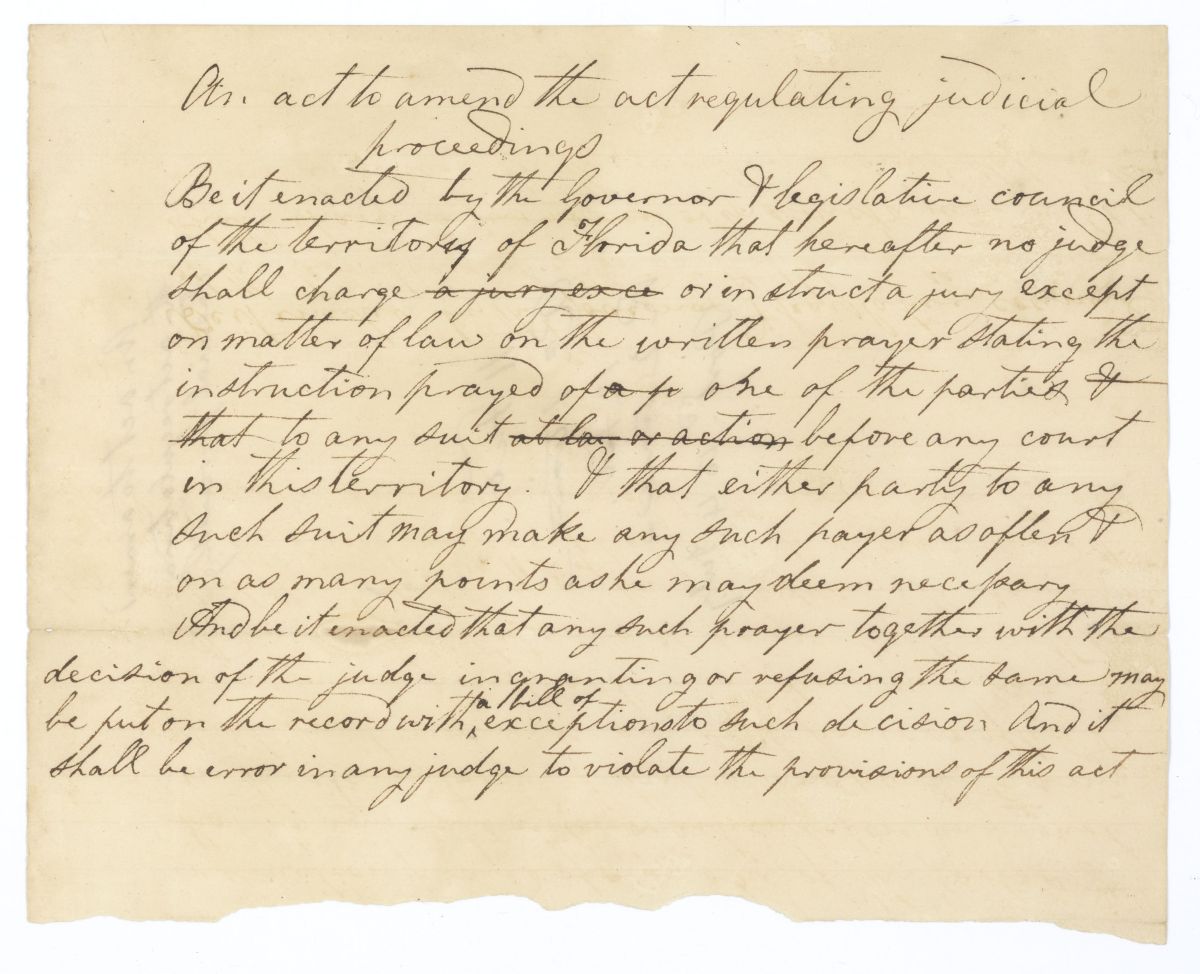 An. act to amend the act regulating judicial
proceedings
Be it enacted by the Governor & legislative council
of the territory of Florida that hereafter no judge
shall charge a jury exce or instruct a jury except
on matter of law on the written prayer stating the
instruction prayed of a p one of the parties &
that to any suit at law or action before any court
in this territory. & that either party to any
such suit may make any such payer as often &
on as many points as he may deem necessary
And be it enacted that any such prayer together with the
decision of the judge in granting or refusing the same may
be put on the record with a bill of exceptions to such decision And it
shall be error in any judge to violate the provisions of this act